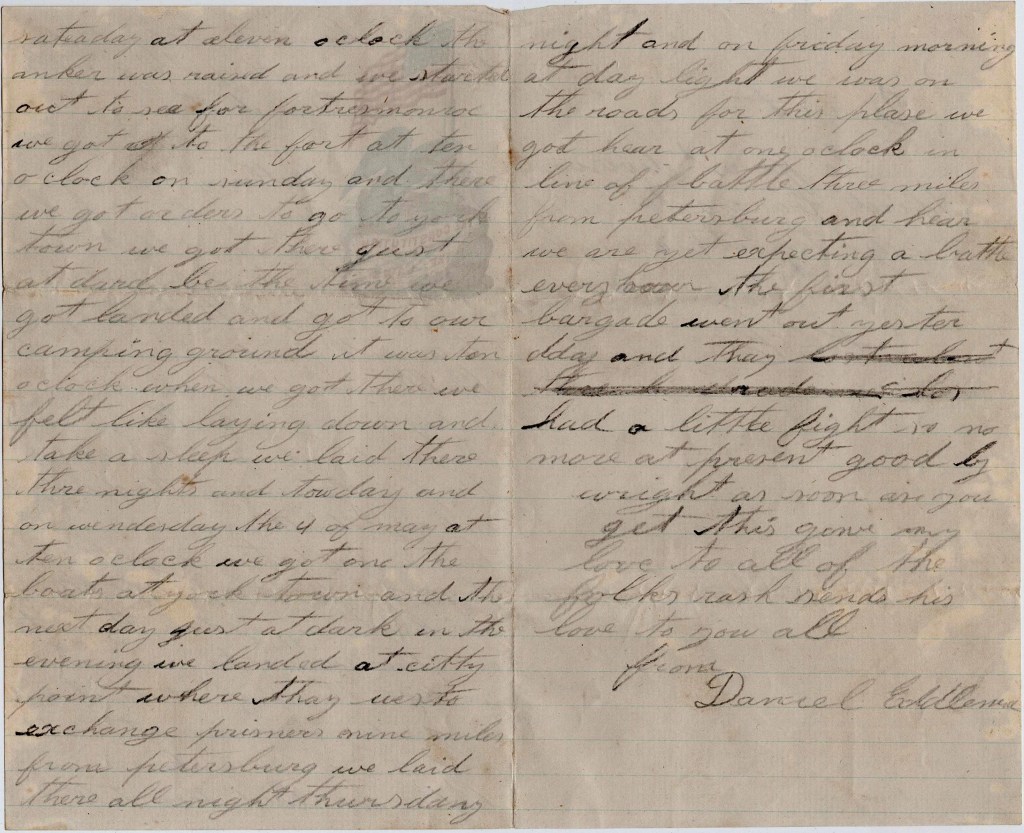 sateaday at eleven oclock the
anker was raised and we started
out to see for fortresmonroe
we got to the fort at ten
oclock on sunday and there
we got orders to go to york
town we got there gust
at dard be the time we
got landed and got to our
camping ground it was ten
oclock when we got there we
felt like laying down and
take a sleep we laid there
thre nights and towdays and
on wendesday the 4 of may at
ten oclock we got one the
boats at york town and the
next day gust at dark in the
evening we landed at citty
point where thay us to
exchange primers nine miles
from petersburg we laid
there all night thursdany
night and on friday morning
at day light we was on
the roads for this plase we
got hear at one oclock in
line of battle three miles
from petersburg and hear
we are yet expecting a battle
every hour the first
bargade went out yester
dday and thay
had a little fight so no
more at present good by
wright as soon as you
get this give my
love to all of the
folks rash sends his
love to you all
from
Daniel